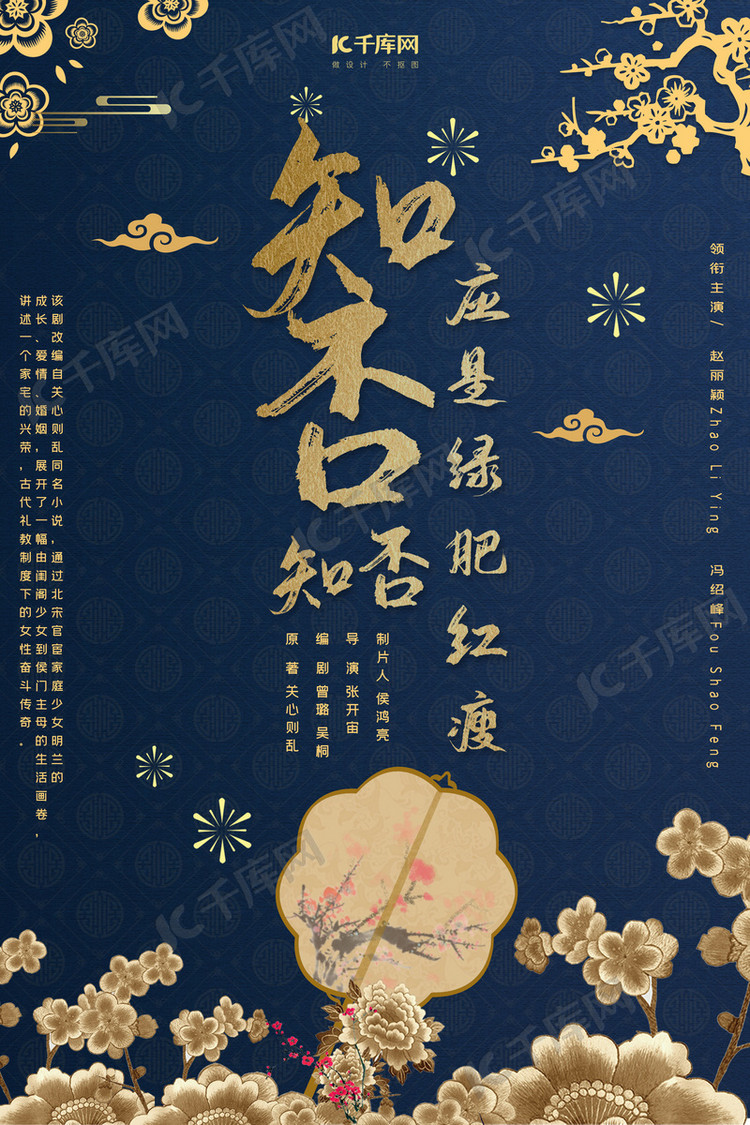 千库网
做设计 不抠图
知否
知否
应是绿肥红瘦
领衔主演/ 赵丽颖Zhao Li Ying 冯绍峰Fou Shao Feng
制片人 侯鸿亮
导 演 张开宙
编 剧 曾璐 吴桐
原 著 关心则乱
该剧改编自关心则乱同名小说，通过北宋官宦家庭少女明兰的
成长、爱情、婚姻，展开了一幅由闺阁少女到侯门主母的生活画卷，
讲述一个家宅的兴荣，古代礼教制度下的女性奋斗传奇。